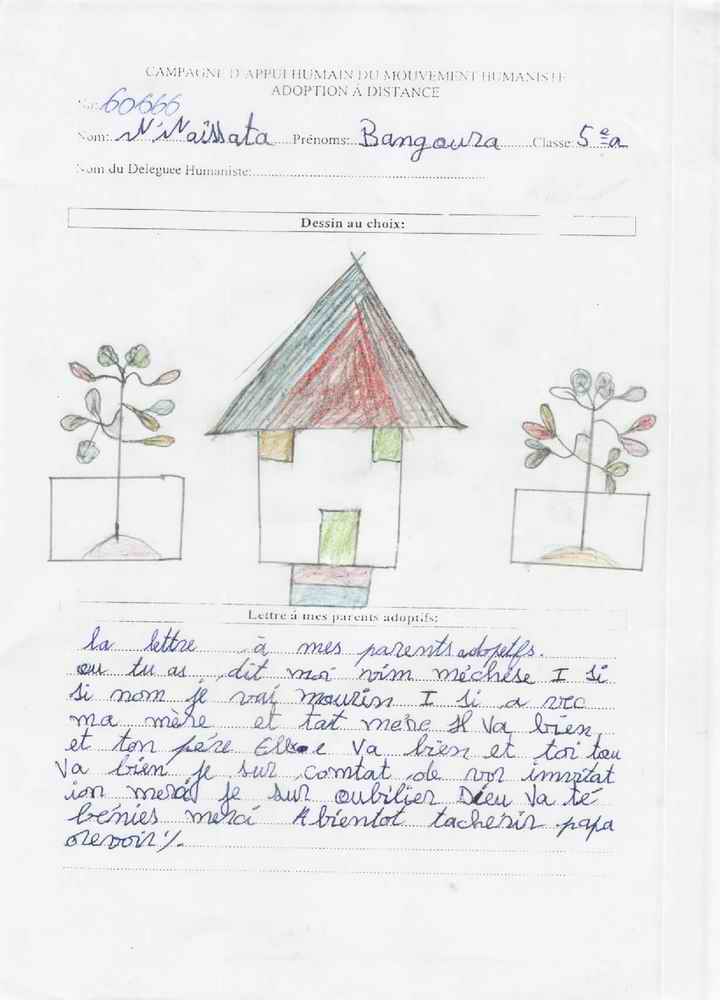 CAMPAGNE D'APPUI HUMAIN DU MOUVEMENT HUMANISTE
ADOPTION À DISTANCE
No: 60666
Nom: N'Naïssata Prénoms: Bangoura Classe: 5e a
Nom du Deleguee Humaniste:
Dessin au choix:
Lettre à mes parents adoptifs:
la lettre à mes parents adoptifs.
ou tu as dit moi vim méchese I si
si nom je vai mourin I si a vec
ma mère et tat mere Il va bien
et ton père Elle va bien et toi tou
Va bien je sur comtat de vor invitat
ion merci je sur oubilier Dieu Va té
bénies merci Abientot tacherir papa
orevoir %.